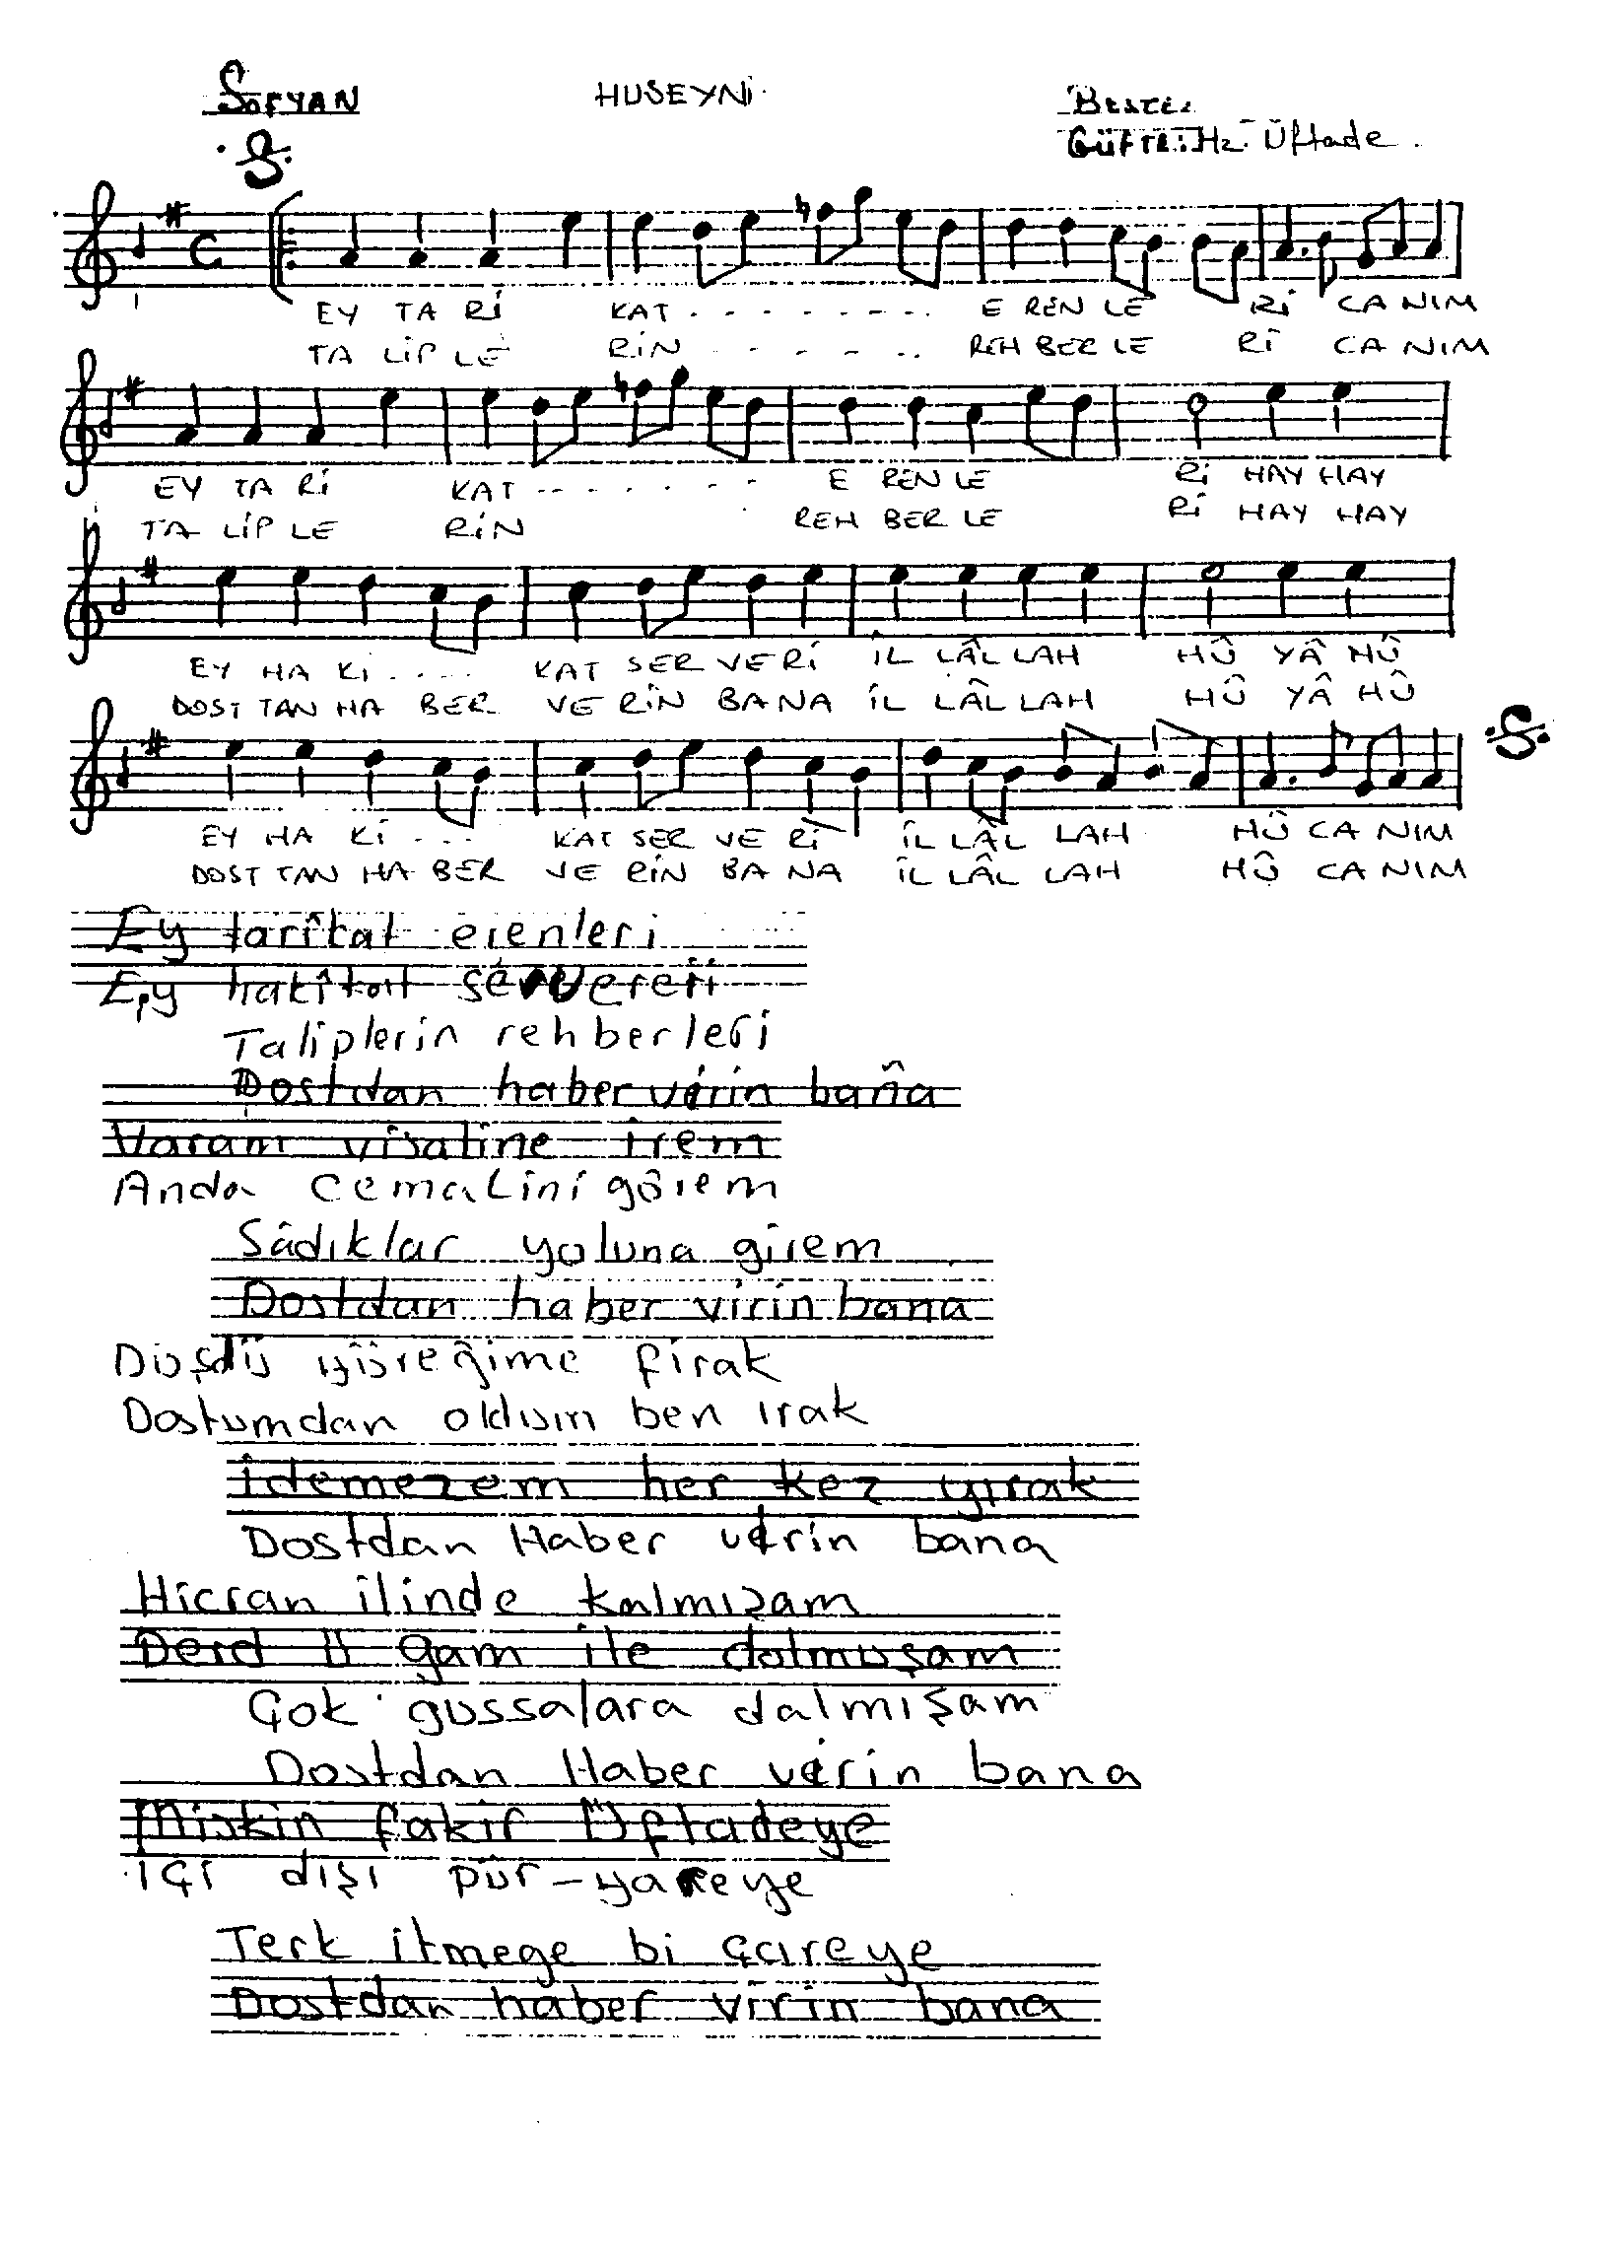 SOFYAN HUSEYNİ BESTE:
GÜFTE: Hz. Üftade.
EY TA Rİ KAT . - - - - - - - . E REN LE Rİ CA NIM
TA LİP LE RİN - - - - . . REH BER LE Rİ CA NIM
EY TA Rİ KAT - - - . . . - - E REN LE Rİ HAY HAY
TA LİP LE RİN REH BER LE Rİ HAY HAY
EY HA Kİ . . - - KAT SER VE Rİ İL LÂL LAH HÛ YÂ HÛ
DOST TAN HA BER VE RİN BA NA İL LÂL LAH HÛ YÂ HÛ
EY HA Kİ - - - KAT SER VE Rİ İL LÂL LAH HÛ CA NIM
DOST TAN HA BER VE RİN BA NA İL LÂL LAH HÛ CA NIM
Ey tarîkat erenleri
Ey hakîkat serverleri
Taliplerin rehberleri
Dostdan haber virin baña
Varam visaline irem
Anda Cemalini görem
Sâdıklar yoluna girem
Dostdan haber virin bana
Düşdü yüreğime firak
Dostumdan oldum ben ırak
İdemezem her kez yırak
Dostdan Haber virin bana
Hicran ilinde kalmışam
Derd ü gam ile dolmuşam
Çok gussalara dalmışam
Dostdan Haber virin bana
Miskin fakir Üftadeye
içi dışı pür-yareye
Terk itmege bi çareye
Dostdan haber virin bana